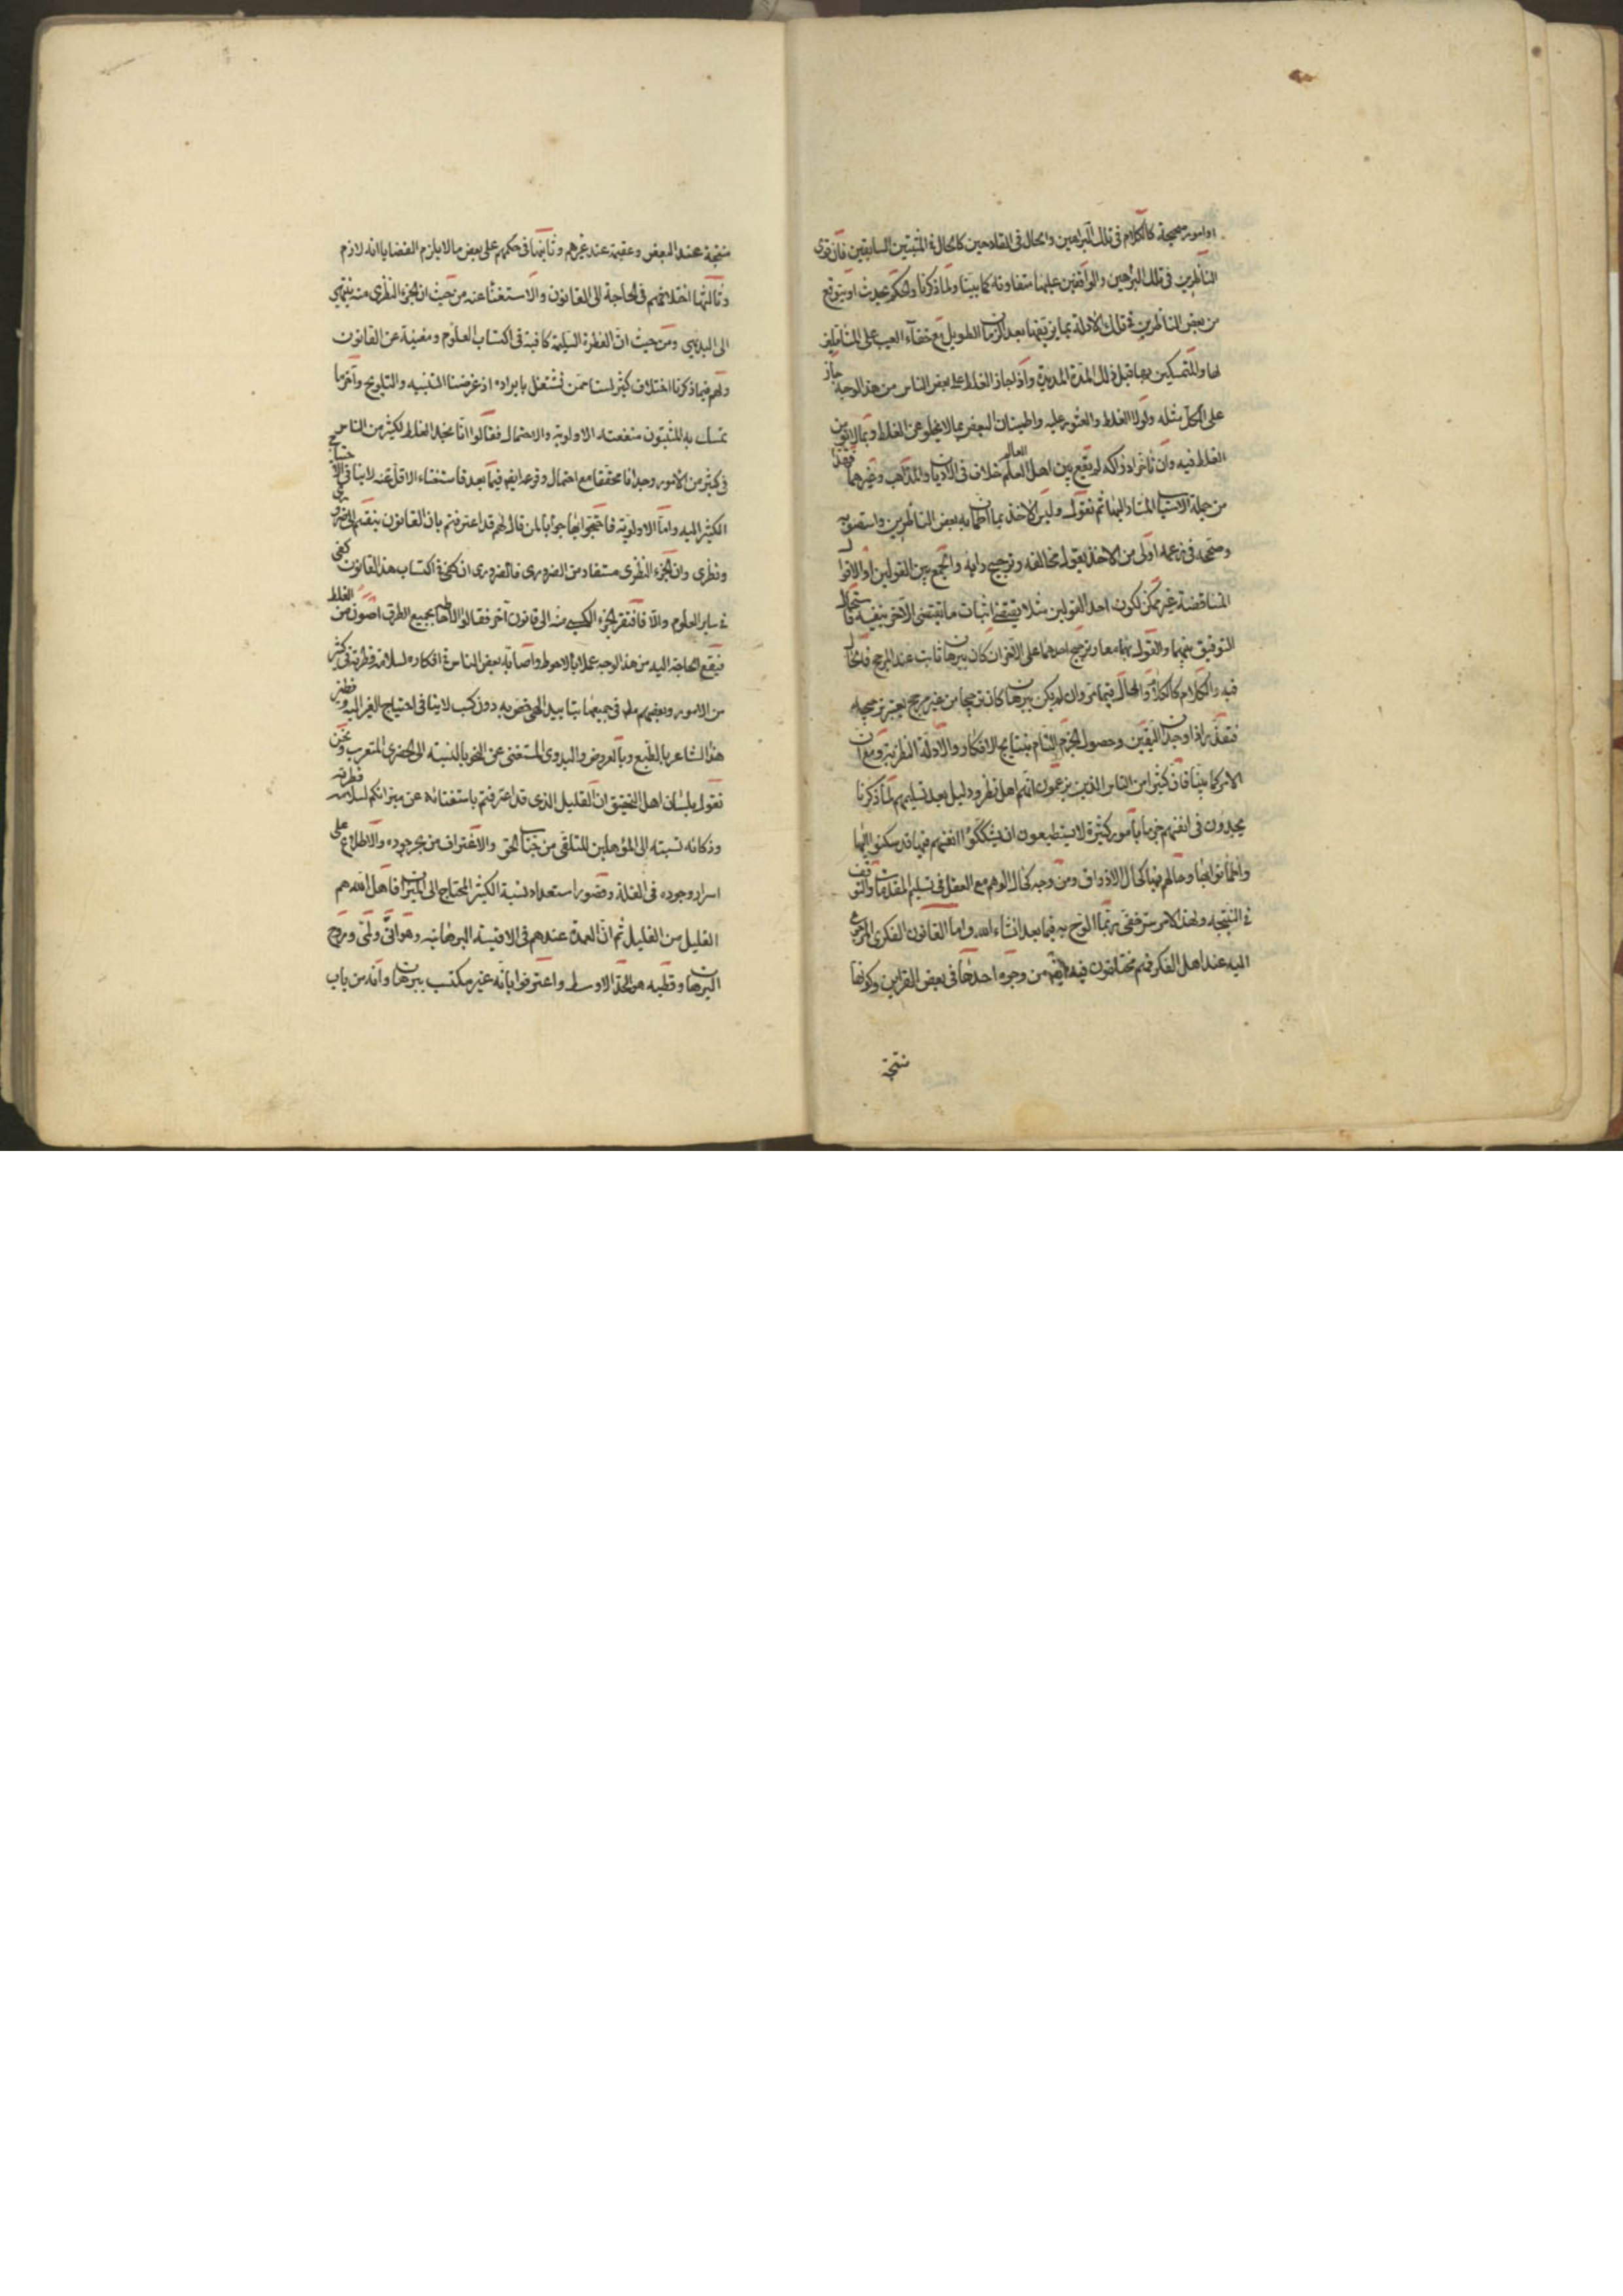 او امور صحيحة كالكلام فى تلك البراهين والحال فى القادحين كالحال فى المثبتين السابقين فان قوى
الناظرين فى تلك البراهين والواقفين عليها متفاوتة كما بينا ولما ذكرنا والحكم يحدث او يتوقع
من بعض الناظرين فى تلك الادلة بما يزيفها بعد الزمان الطويل مع خفاء العيب على المتأملين
لها والمتمسكين بها قبل ذلك المدة المديدة واذا جاز الغلط على بعض الناس من هذا الوجه جاز
على الكل مثله ولولا الغلط والعثور عليه واطمينان البعض بما لا يخلو عن الغلط وبما لا يؤمن
الغلط فيه وان تأخر ادراكه لم يقع بين اهل العلم العالم خلاف فى الاديان والمذاهب وغيرهما فهذا
من جملة الاسباب المشار اليها ثم نقول وليس الاخذ بما اطمأن به بعض الناظرين واستصوبه
وصححه فى زعمه اولى من الاخذ بقول مخالفه وترجيح رأيه والجمع بين القولين او الاقوال
المتناقضة غير ممكن لكون احد القولين مثلا يقتضى اثبات ما يقتضى الاخر بنفيه فاستحال
التوفيق بينهما والقول بهما معا وترجيح احدهما على الاخر ان كان ببرهان ثابت عند المرجح فالحال
فيه والكلام كالكلام والحال فيما مر وان لم يكن ببرهان كان ترجيحا من غير مرجح يعتبر ترجيحه
فتعذر اذا وجدان اليقين وحصول الجزم التام بنتايج الافكار والادلة النظرية ومع ان
الامر كما بينا فان كثيرا من الناس الذين يزعمون انهم اهل نظر ودليل بعد تسليمهم لما ذكرنا
يجدون فى انفسهم جزما بامور كثيرة لا يستطيعون ان يشككوا انفسهم فيها قد سكنوا اليها
واطمأنوا بها وحالهم فيها كحال الاذواق ومن وجه كحال الوهم مع العقل فى تسليم المقدمات والتوقف
فى النتيجة ولهذا الامر سر خفى ربما الوح به فيما بعد ان شاء الله واما القانون الفكرى المرجوع
اليه عند اهل الفكر فهم مختلفون فيه ايضا من وجوه احدها فى بعض القراين وكونها
نتيجة
منتجة عند البعض وعقيمة عند غيرهم وثانيها فى حكمهم على بعض ما لا يلزم القضايا انه لازم
وثالثها اختلافهم فى الحاجة الى القانون والاستغنا عنه من حيث ان الجزء النظرى منه ينتهى
الى البديهى ومن حيث ان الفطرة السليمة كافية فى اكتساب العلوم ومغنية عن القانون
ولهم فيما ذكرنا اختلاف كثير لسنا ممن نشتغل بايراده اذ غرضنا التنبيه والتلويح وآخر ما
تمسك به المثبتون منفعته الاولوية والاحتمال فقالوا انا نجد الغلط لكثير من الناس
فى كثير من الامور وجدانا محققا مع احتمال وقوعه ايضا فيما بعد فاستغناء الاقل عنه لا ينافى احتياج
الكثير اليه واما الاولوية فاحتجوا بها جوابا لمن قال لهم قد اعترفتم بان القانون ينقسم الى ضرورى
ونظرى وان الجزء النظرى مستفاد من الضرورى فالضرورى ان كفى فى اكتساب هذا القانون كفى
فى ساير العلوم والا فافتقر الجزء الكسبى منه الى قانون آخر فقالوا الاحاطة بجميع الطرق اصون من الغلط
فيقع الحاجة اليه من هذا الوجه عملا بالاحوط واصابة بعض الناس فى افكاره لسلامة فطرته فى كثير
من الامور وبعضهم مطلقا فى جميعها بتاييد الهى خص به دون كسب لا ينافى احتياج الغير اليه ونظير
هذا الشاعر بالطبع وبالعروض والبدوى المستغنى عن النحو بالنسبة الى الحضرى المتعرب ونحن
نقول بلسان اهل التحقيق ان القليل الذى قد اعترفتم باستغنائه عن ميزانكم لسلامة فطرته
وذكائه نسبته الى المؤهلين للتلقى من جناب الحق والاغتراف من بحر جوده والاطلاع على
اسرار وجوده فى القلة وقصور استعداد نسبة الكثير المحتاج الى الميزان فاهل الله هم
القليل من القليل ثم ان العمدة عندهم فى الاقيسة البرهانية وهو انى ولمى وروح
البرهان وقطبه هو الحد الاوسط واعترفوا بانه غير مكتسب ببرهان وانه من باب